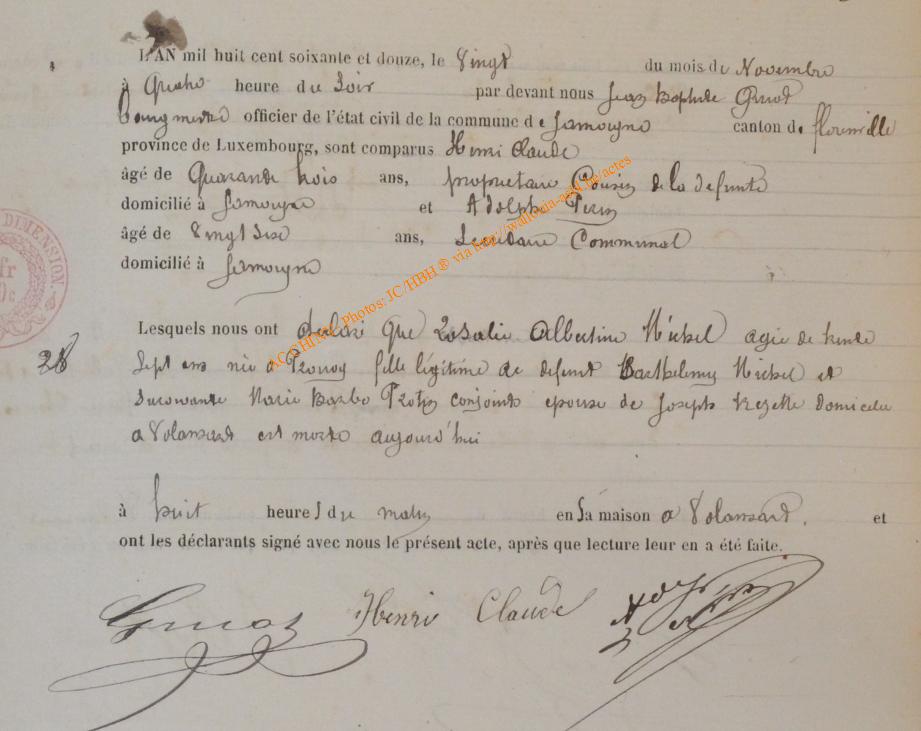 L'AN mil huit cent soixante et douze, le Vingt du mois de Novembre
à Quatre heure du Soir par devant nous Jean Baptiste
bourgmestre officier de l'état civil de la commune de Jamoigne canton de florenville
province de Luxembourg, sont comparus Henri Claude
âgé de Quarante trois ans, propriétaire Cousin de la defunte
domicilié à Jamoigne et Adolphe Pierson
âgé de Vingt Six ans, Secretaire Communal
domicilié à Jamoigne
Lesquels nous ont declaré que Rosalie Albertine Michel agée de trente
38
Sept ans née a fille légitime de defunt Barthelemy Michel et
Survivante Marie Barbe conjoints epouse de Joseph domicilié
a Volansart est morte aujourd'hui
à huit heures du matin en Sa maison a Volansart. et
ont les déclarants signé avec nous le présent acte, après que lecture leur en a été faite.
Henri Claude
DIMENSION.
fr
0c
ACGHFBH. Photos: JC/HBH ® via http://wallonia-asbl.be/actes